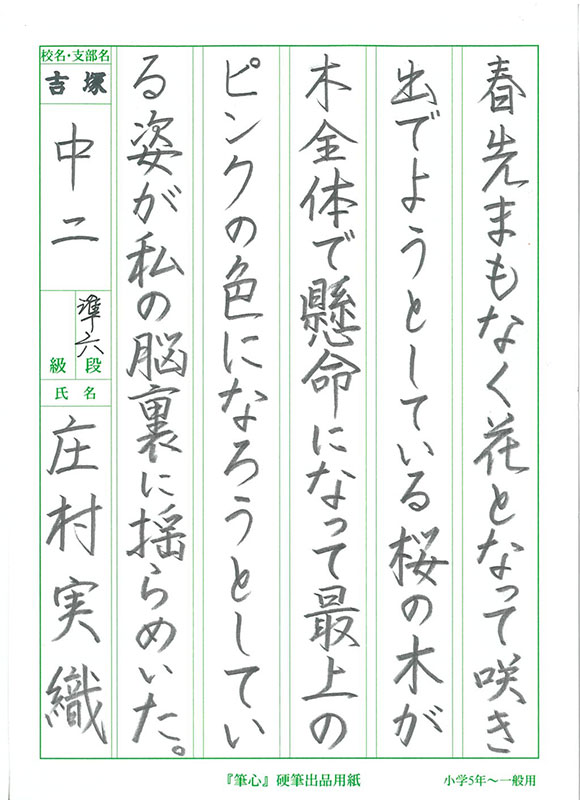 春先まもなく花となって咲き
出でようとしている桜の木が
木全体で懸命になって最上の
ピンクの色になろうとしてい
る姿が私の脳裏に揺らめいた。
校名・支部名
吉塚
中二
準六
段
級
氏名
庄村実織
『筆心』硬筆出品用紙
小学5年〜一般用